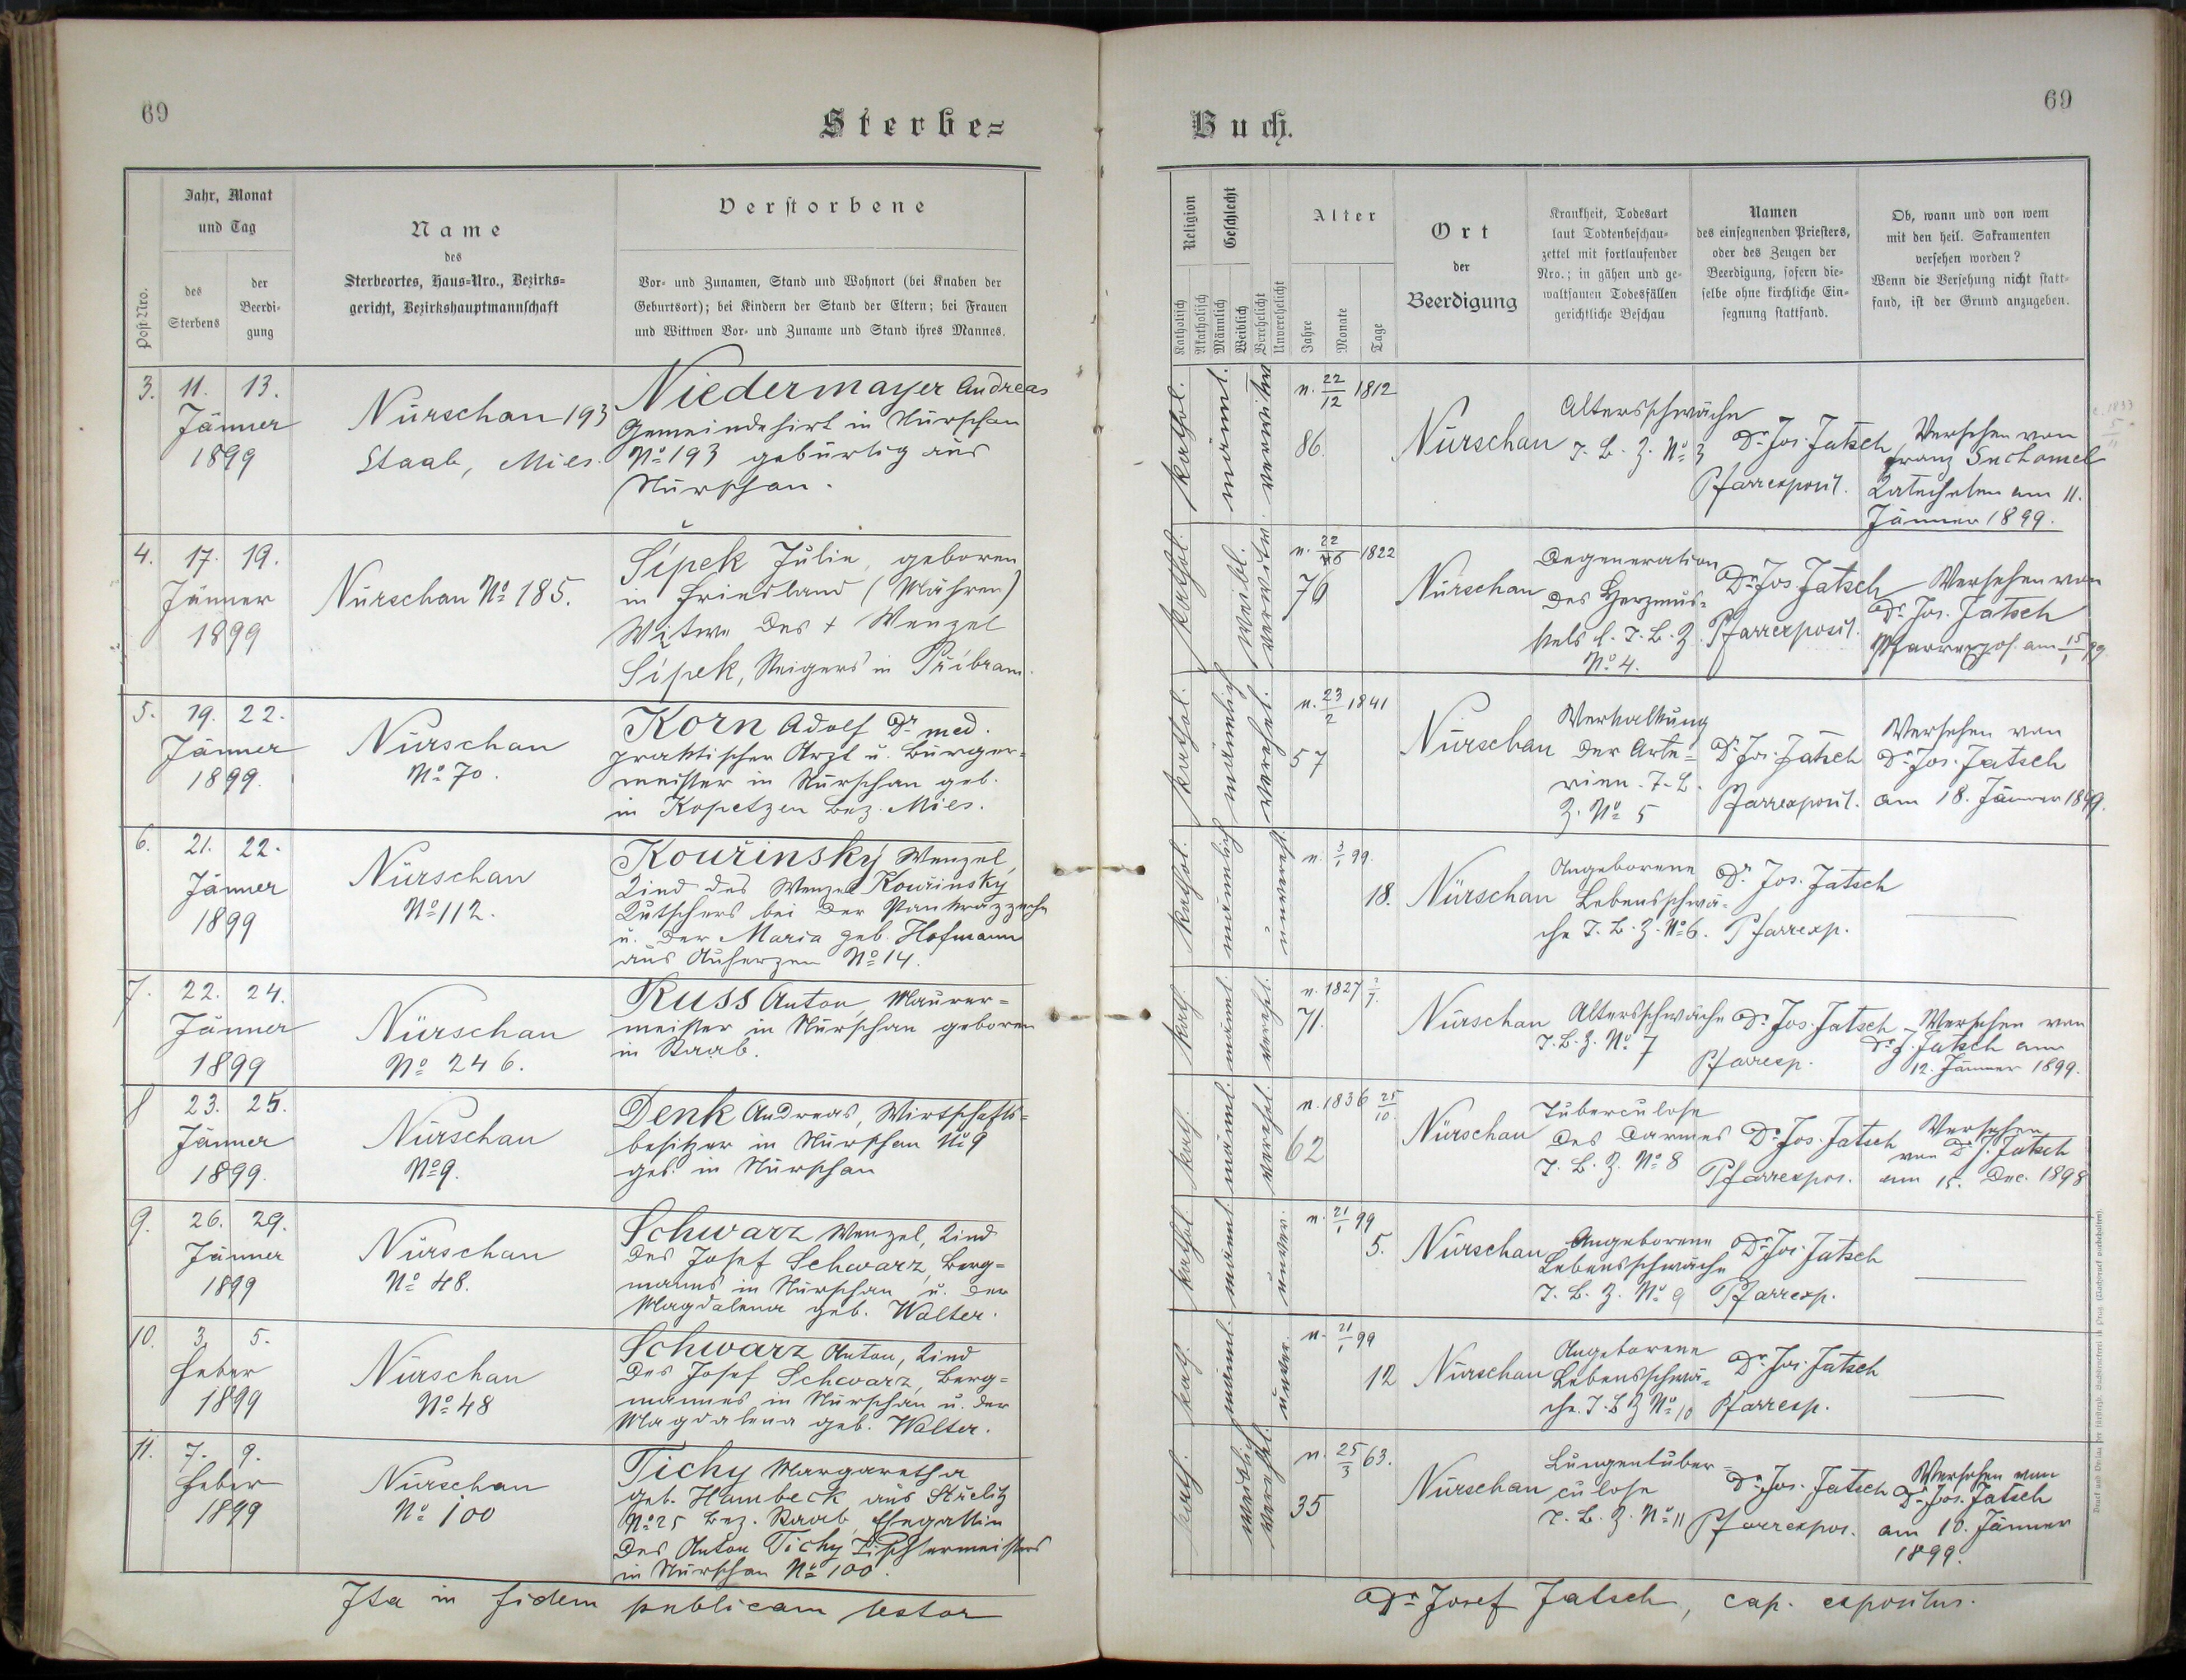 69
Sterbe=
Jahr, Monat
und Tag
Post-Nro.
des
Sterbens
der
Beerdi-
gung
Name
des
Sterbeortes, Haus-Nro., Bezirks=
gericht, Bezirkshauptmannschaft
Verstorbene
Vor- und Zunamen, Stand und Wohnort (bei Knaben der
Geburtsort); bei Kindern der Stand der Eltern; bei Frauen
und Wittwen Vor- und Zuname und Stand ihres Mannes.
3. 11. 13.
Jänner
1899
Nürschan 193
Staab, Mies.
Niedermayer Andreas
Gemeindehirt in Nürschan
No 193 gebürtig aus
Nürschan.
4. 17. 19.
Jänner
1899
Nürschan No 185.
Šípek Julie, geboren
in Friedland (Mähren)
Witwe des + Wenzel
Šípek, Steigers in Příbram.
5. 19. 22.
Jänner
1899.
Nürschan
No 70.
Korn Adolf Dr. med.
praktischer Arzt u. Bürger=
meister in Nürschan geb.
in Kopetzen Bez. Mies.
6. 21. 22.
Jänner
1899
Nürschan
No 112.
Kouřinský Wenzel,
Kind des Wenzel Kouřinský
Kutschers bei der Pankrazzeche
u. der Maria geb. Hofmann
aus Auherzen No 14.
7. 22. 24.
Jänner
1899
Nürschan
No 246.
Russ Anton, Maurer=
meister in Nürschan geboren
in Staab.
8 23. 25.
Jänner
1899.
Nürschan
No 9.
Denk Andreas, Wirtschafts=
besitzer in Nürschan No 9
geb. in Nürschan
9. 26. 29.
Jänner
1899
Nürschan
No 48.
Schwarz Wenzel, Kind
des Josef Schwarz, Berg=
manns in Nürschan u. der
Magdalena geb. Walter.
10. 3. 5.
Feber
1899
Nürschan
No 48
Schwarz Anton, Kind
des Josef Schwarz, Berg=
mannes in Nürschan u. der
Magdalena geb. Walter.
11. 7. 9.
Feber
1899
Nürschan
No 100
Tichy Margaretha
geb. Hambeck aus Střelitz
No 25 Bez. Staab, Ehegattin
des Anton Tichy Tischlermeisters
in Nürschan No 100.
Ita in fidem publicam testor
69
Buch.
Religion
Katholisch
Akatholisch
Geschlecht
Männlich
Weiblich
Verehelicht
Unverehelicht
Alter
Jahre
Monate
Tage
Ort
der
Beerdigung
Krankheit, Todesart
laut Todtenbeschau-
zettel mit fortlaufender
Nro.; in gähen und ge-
waltsamen Todesfällen
gerichtliche Beschau
Namen
des einsegnenden Priesters,
oder des Zeugen der
Beerdigung, sofern die-
selbe ohne kirchliche Ein-
segnung stattfand.
Ob, wann und von wem
mit den heil. Sakramenten
versehen worden?
Wenn die Versehung nicht statt-
fand, ist der Grund anzugeben.
kathol. männl. verwitw
n. 22/12 1812
86.
Nürschan
Altersschwäche
T. B. Z. No 3
Dr. Jos. Jatsch
Pfarrexposit.
Versehen von
Franz Suchomel
Katecheten am 11.
Jänner 1899.
kathol. weibl. verwitw.
n. 22/ 1822
76
Nürschan
Degeneration
des Herzmus=
kels l. T. B. Z.
No 4.
Dr. Jos. Jatsch
Pfarrexposit.
Versehen von
Dr. Jos. Jatsch
Pfarrexpos. am 15/1 99.
kathol. männlich verehel.
n. 23/2 1841
57
Nürschan
Verkalkung
der Arte=
rien. T. B.
Z. No 5
Dr. Jos. Jatsch
Pfarrexposit.
Versehen von
Dr. Jos. Jatsch
am 18. Jänner 1899.
kathol. männlich unvereh.
n. 3/1 99.
18.
Nürschan
Angeborene
Lebensschwä-
che T. B. Z. No 6.
Dr. Jos. Jatsch
Pfarrexp.
kath. männl. verehel.
n. 1827 ?/7.
71.
Nürschan
Altersschwäche
T. B. Z. No. 7
Dr. Jos. Jatsch
Pfarrexp.
Versehen von
Dr. J. Jatsch am
12. Jänner 1899.
kath. männl. verehel.
n. 1836 25/10.
62
Nürschan
Tuberculose
des Darmes
T. B. Z. No 8
Dr. Jos. Jatsch
Pfarrexpos.
Versehen
von Dr. J. Jatsch
am 15. Dec. 1898
kathol. männl. unver.
n. 21/1 99
5.
Nürschan
Angeborene
Lebensschwäche
T. B. Z. No 9
Dr. Jos. Jatsch
Pfarrexp.
kath. männl. unver.
n. 21/1 99
12
Nürschan
Angeborene
Lebensschwä=
che. T. B. Z No 10
Dr. Jos. Jatsch
Pfarrexp.
kath. weiblich verehel.
n. 25/3 63.
35
Nürschan
Lungentuber=
culose
T. B. Z. No 11
Dr. Jos. Jatsch
Pfarrexpos.
Versehen von
Dr. Jos. Jatsch
am 10. Jänner
1899.
Dr. Josef Jatsch, cap. expositus.